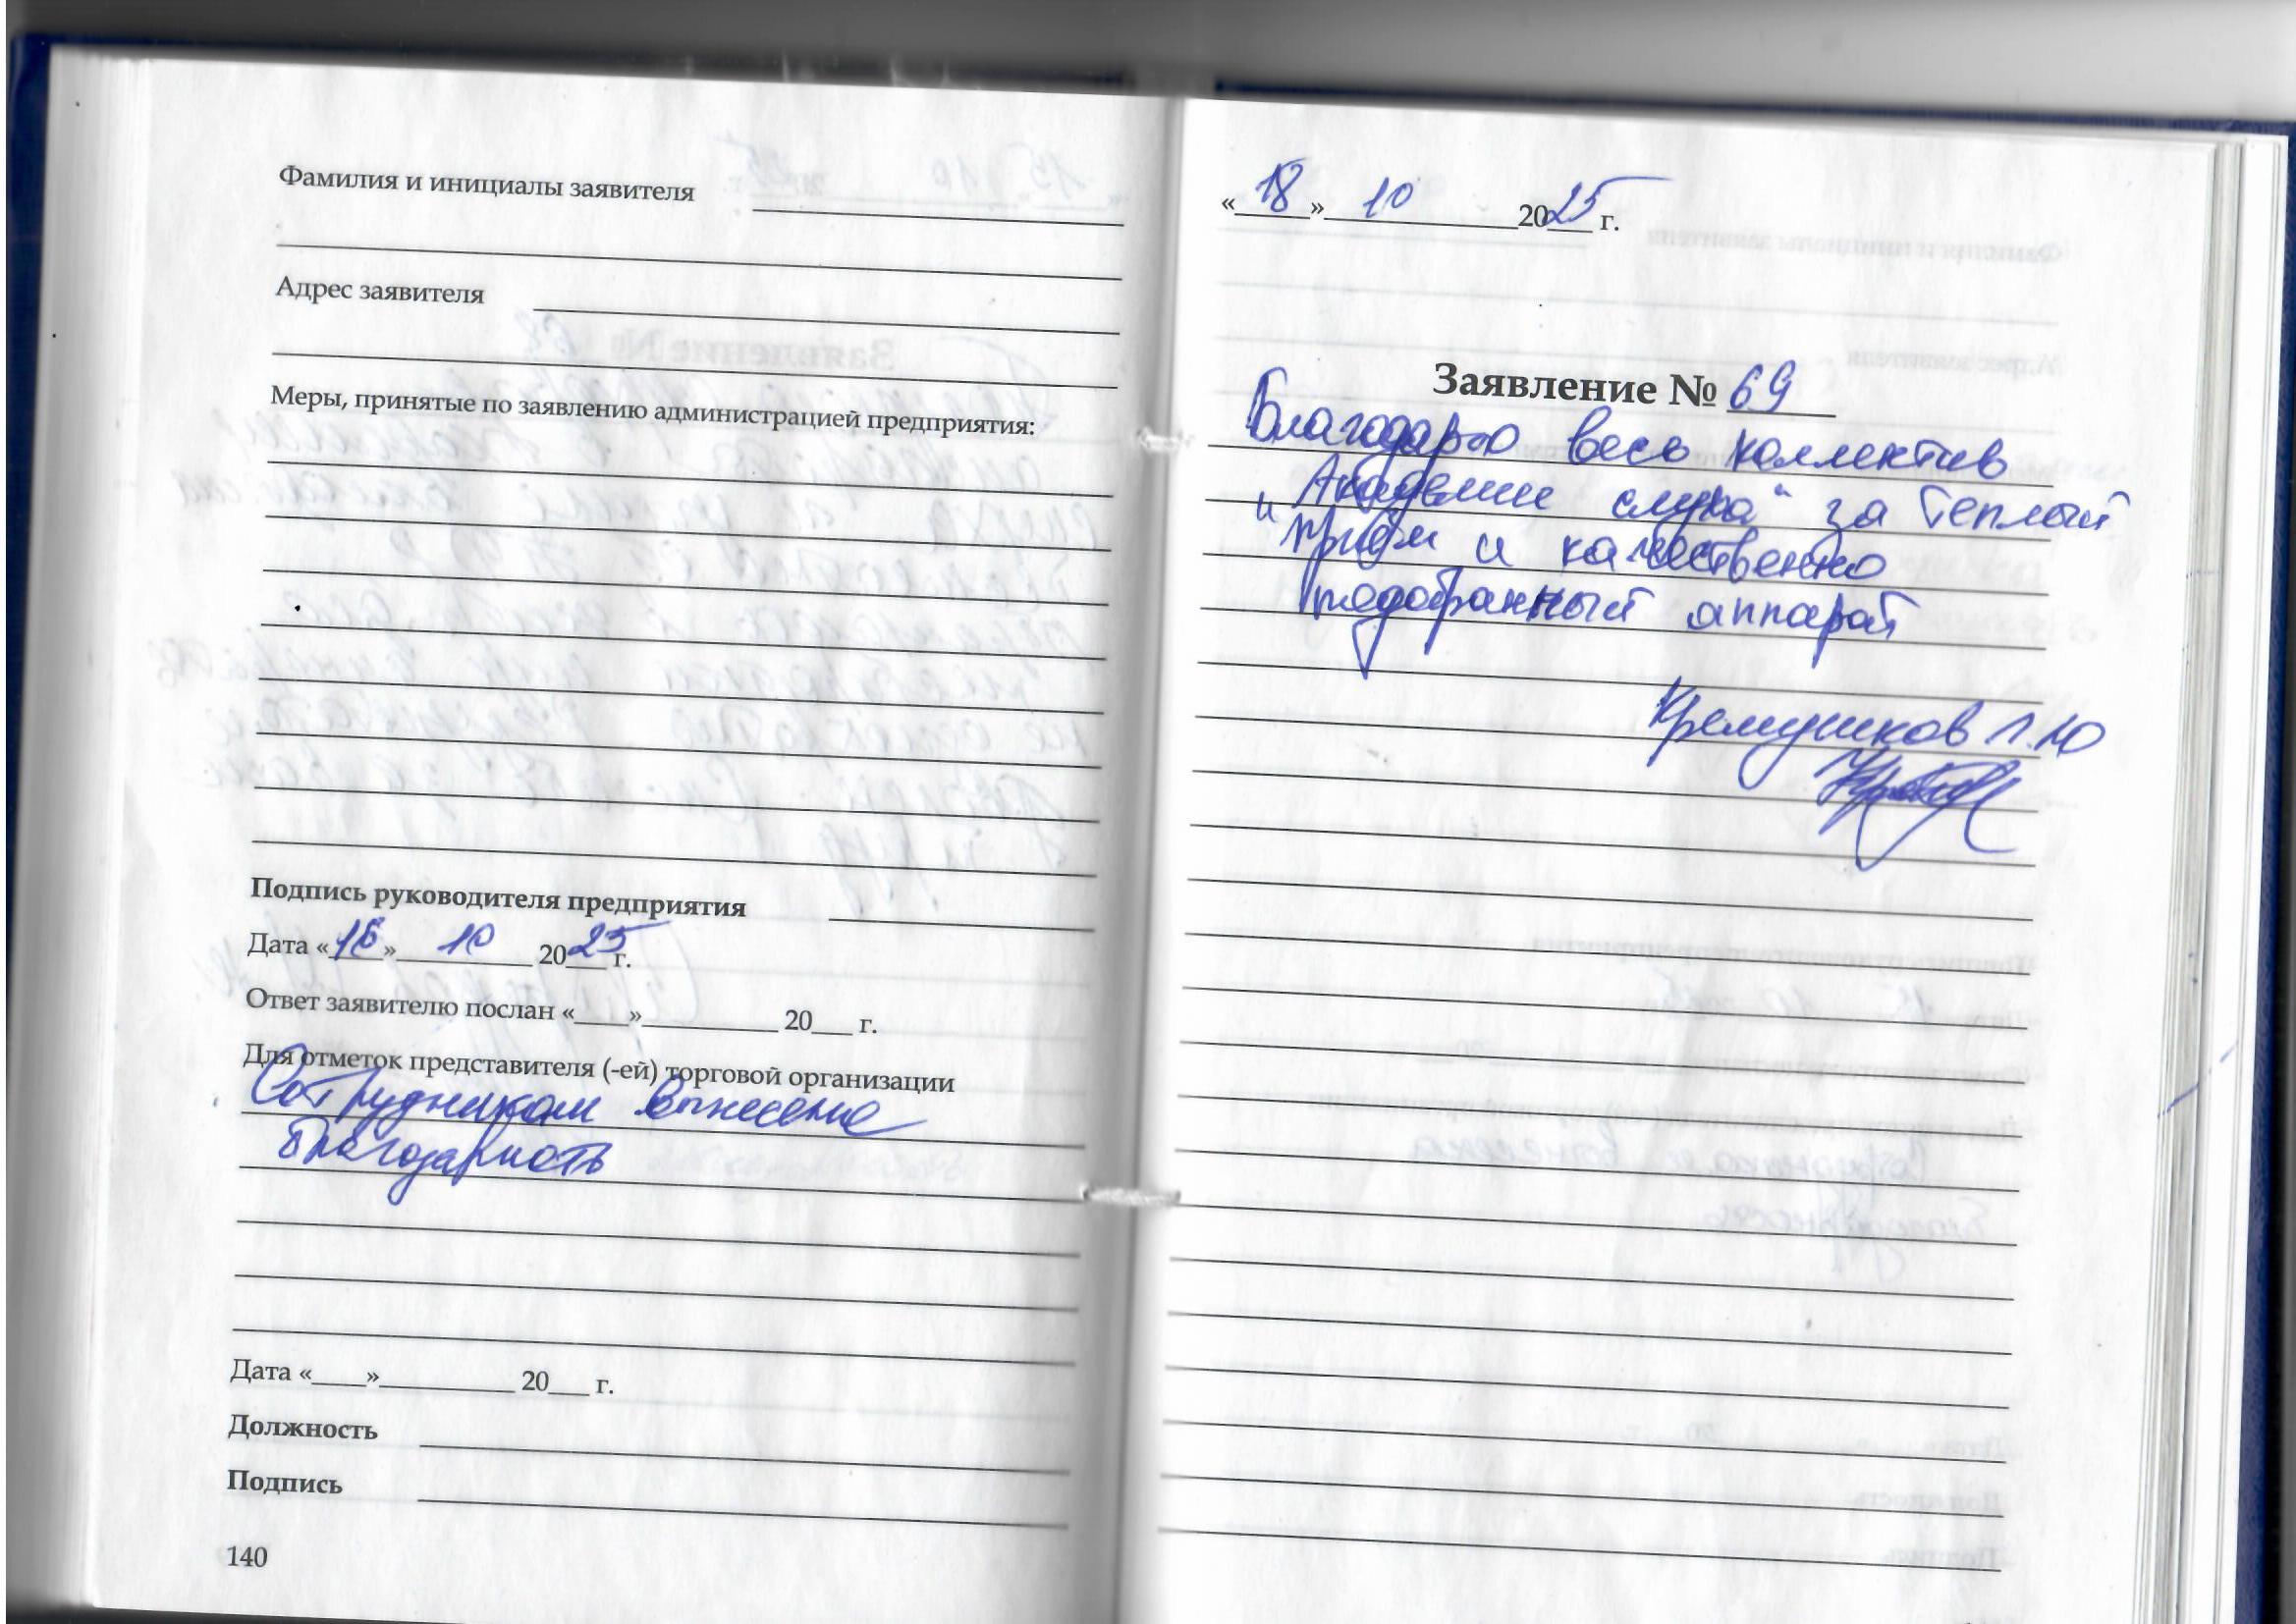 Фамилия и инициалы заявителя
Адрес заявителя
Меры, принятые по заявлению администрацией предприятия:
Подпись руководителя предприятия
Дата «16» 10 2025 г.
Ответ заявителю послан «____»__________ 20___ г.
Для отметок представителя (-ей) торговой организации
Сотрудникам вынесена
благодарность
Дата «____»__________ 20___ г.
Должность
Подпись
140
«18» 10 2025 г.
Заявление № 69
Благодарю весь коллектив
"Академии слуха" за теплый
приём и качественно
подобранный аппарат
Л.Ю